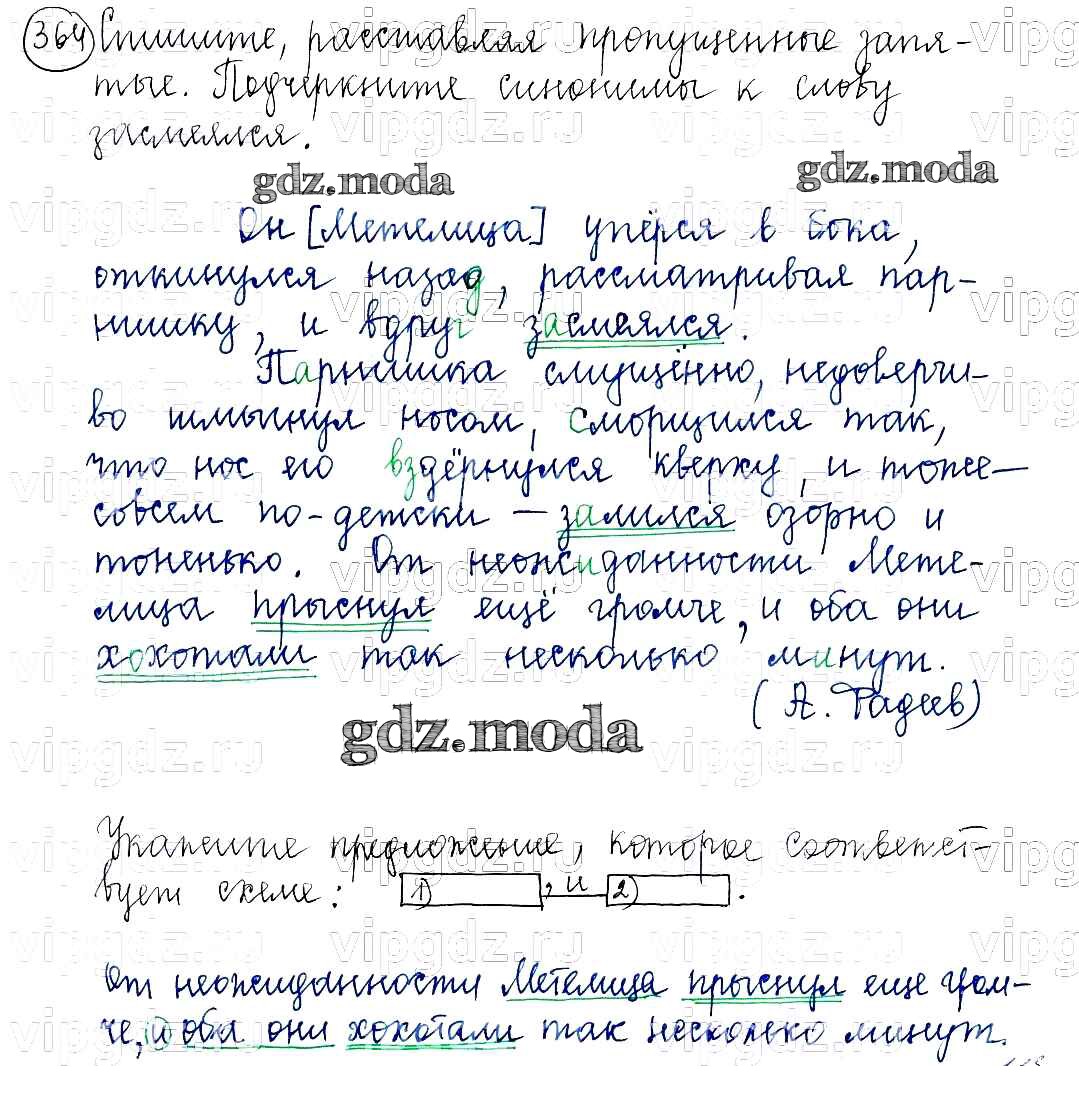 364 Спишите, расставляя пропущенные запя-
тые. Подчеркните синонимы к слову
засмеялся.
gdz.moda gdz.moda
Он [Метелица] упёрся в бока,
откинулся назад, рассматривая пар-
нишку, и вдруг засмеялся.
Парнишка смущённо, недоверчи-
во шмыгнул носом, сморщился так,
что нос его вздёрнулся кверху, и тоже –
совсем по-детски – залился озорно и
тоненько. От неожиданности Мете-
лица прыснул ещё громче, и оба они
хохотали так несколько минут.
(А. Фадеев)
gdz.moda
Укажите предложение, которое соответст-
вует схеме: 1) , и 2) .
От неожиданности Метелица прыснул еще гром-
че, и оба они хохотали так несколько минут.